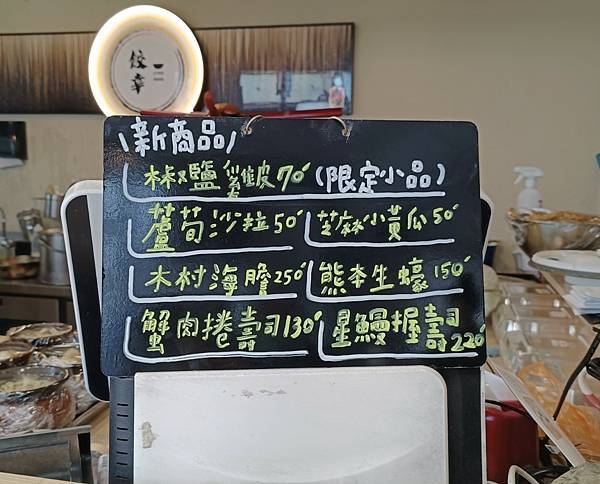 佼幸
\新商品/
椒鹽雞皮70 (限定小品)
蘆筍沙拉50 芝麻小黃瓜50
木村海膽250 熊本生蠔150
蟹肉捲壽司130 星鰻握壽司220